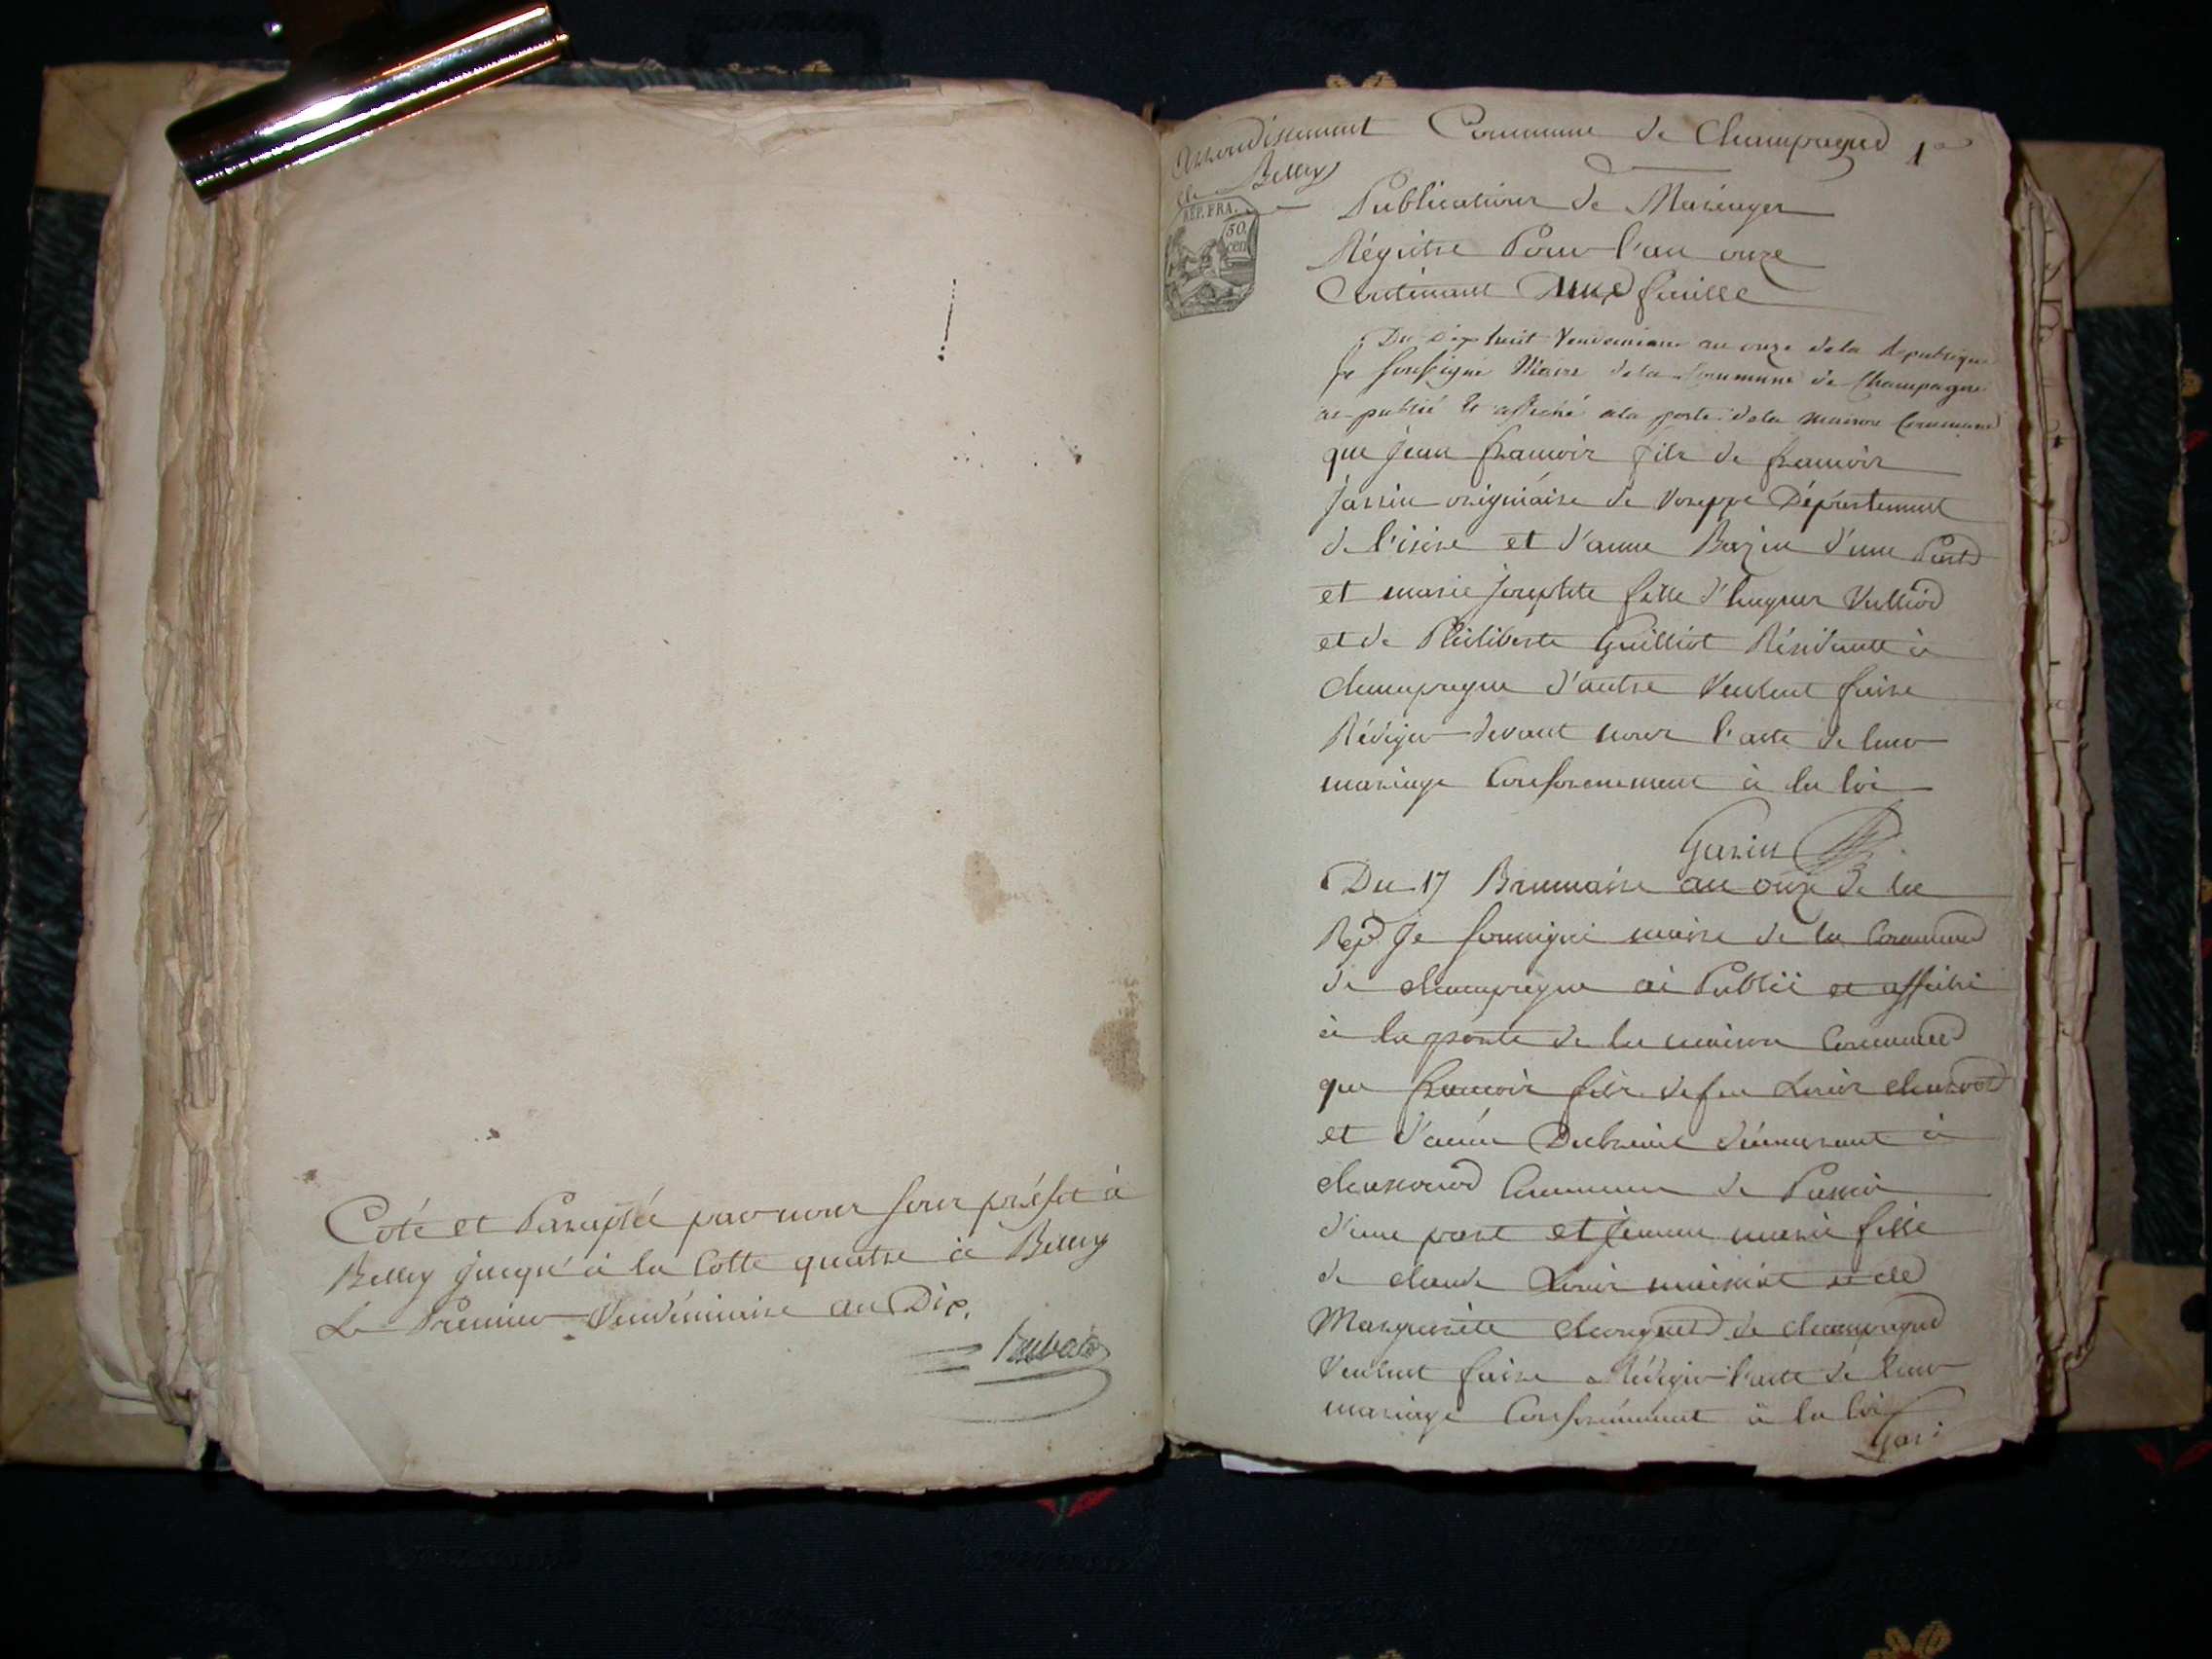 Coté et Paraphé par nous sous préfet à
Belley jusqu'à la Cotte quatre à Belley
Le Premier Vendémiaire an Dix.
Arrondissement
de Belley
Commune de Champagne 1er
REP. FRA.
50
cen
Publications de Mariages
Régistre Pour l'an onze
Contenant une feuille
Du dix huit Vendemiaire an onze de la Republique
Je soussigné Maire de la Commune de Champagne
ai publié et affiché a la porte de la maison Commune
que Jean francois fils de francois
Jassin originaire de Voreppe Département
de l'isère et d'anne Bazin d'une Part
et marie Josephte fille d'hugues Vulliod
et de Philiberte Guilliot Résidante à
champagne d'autre Veulent faire
Rédiger devant nous l'acte de leur
mariage Conformement à la loi
Garin
Du 17 Brumaire an onze de la
Rep. Je soussigné maire de la Commune
de champagne ai Publié et affiché
à la porte de la maison Commune
que francois fils de feu Louis
et d'anne demeurant à
Commune de
d'une part et Jeanne marie fille
de claude Louis et de
Marguerite de champagne
Veulent faire Rédiger l'acte de leur
mariage Conformément à la loi
Gari